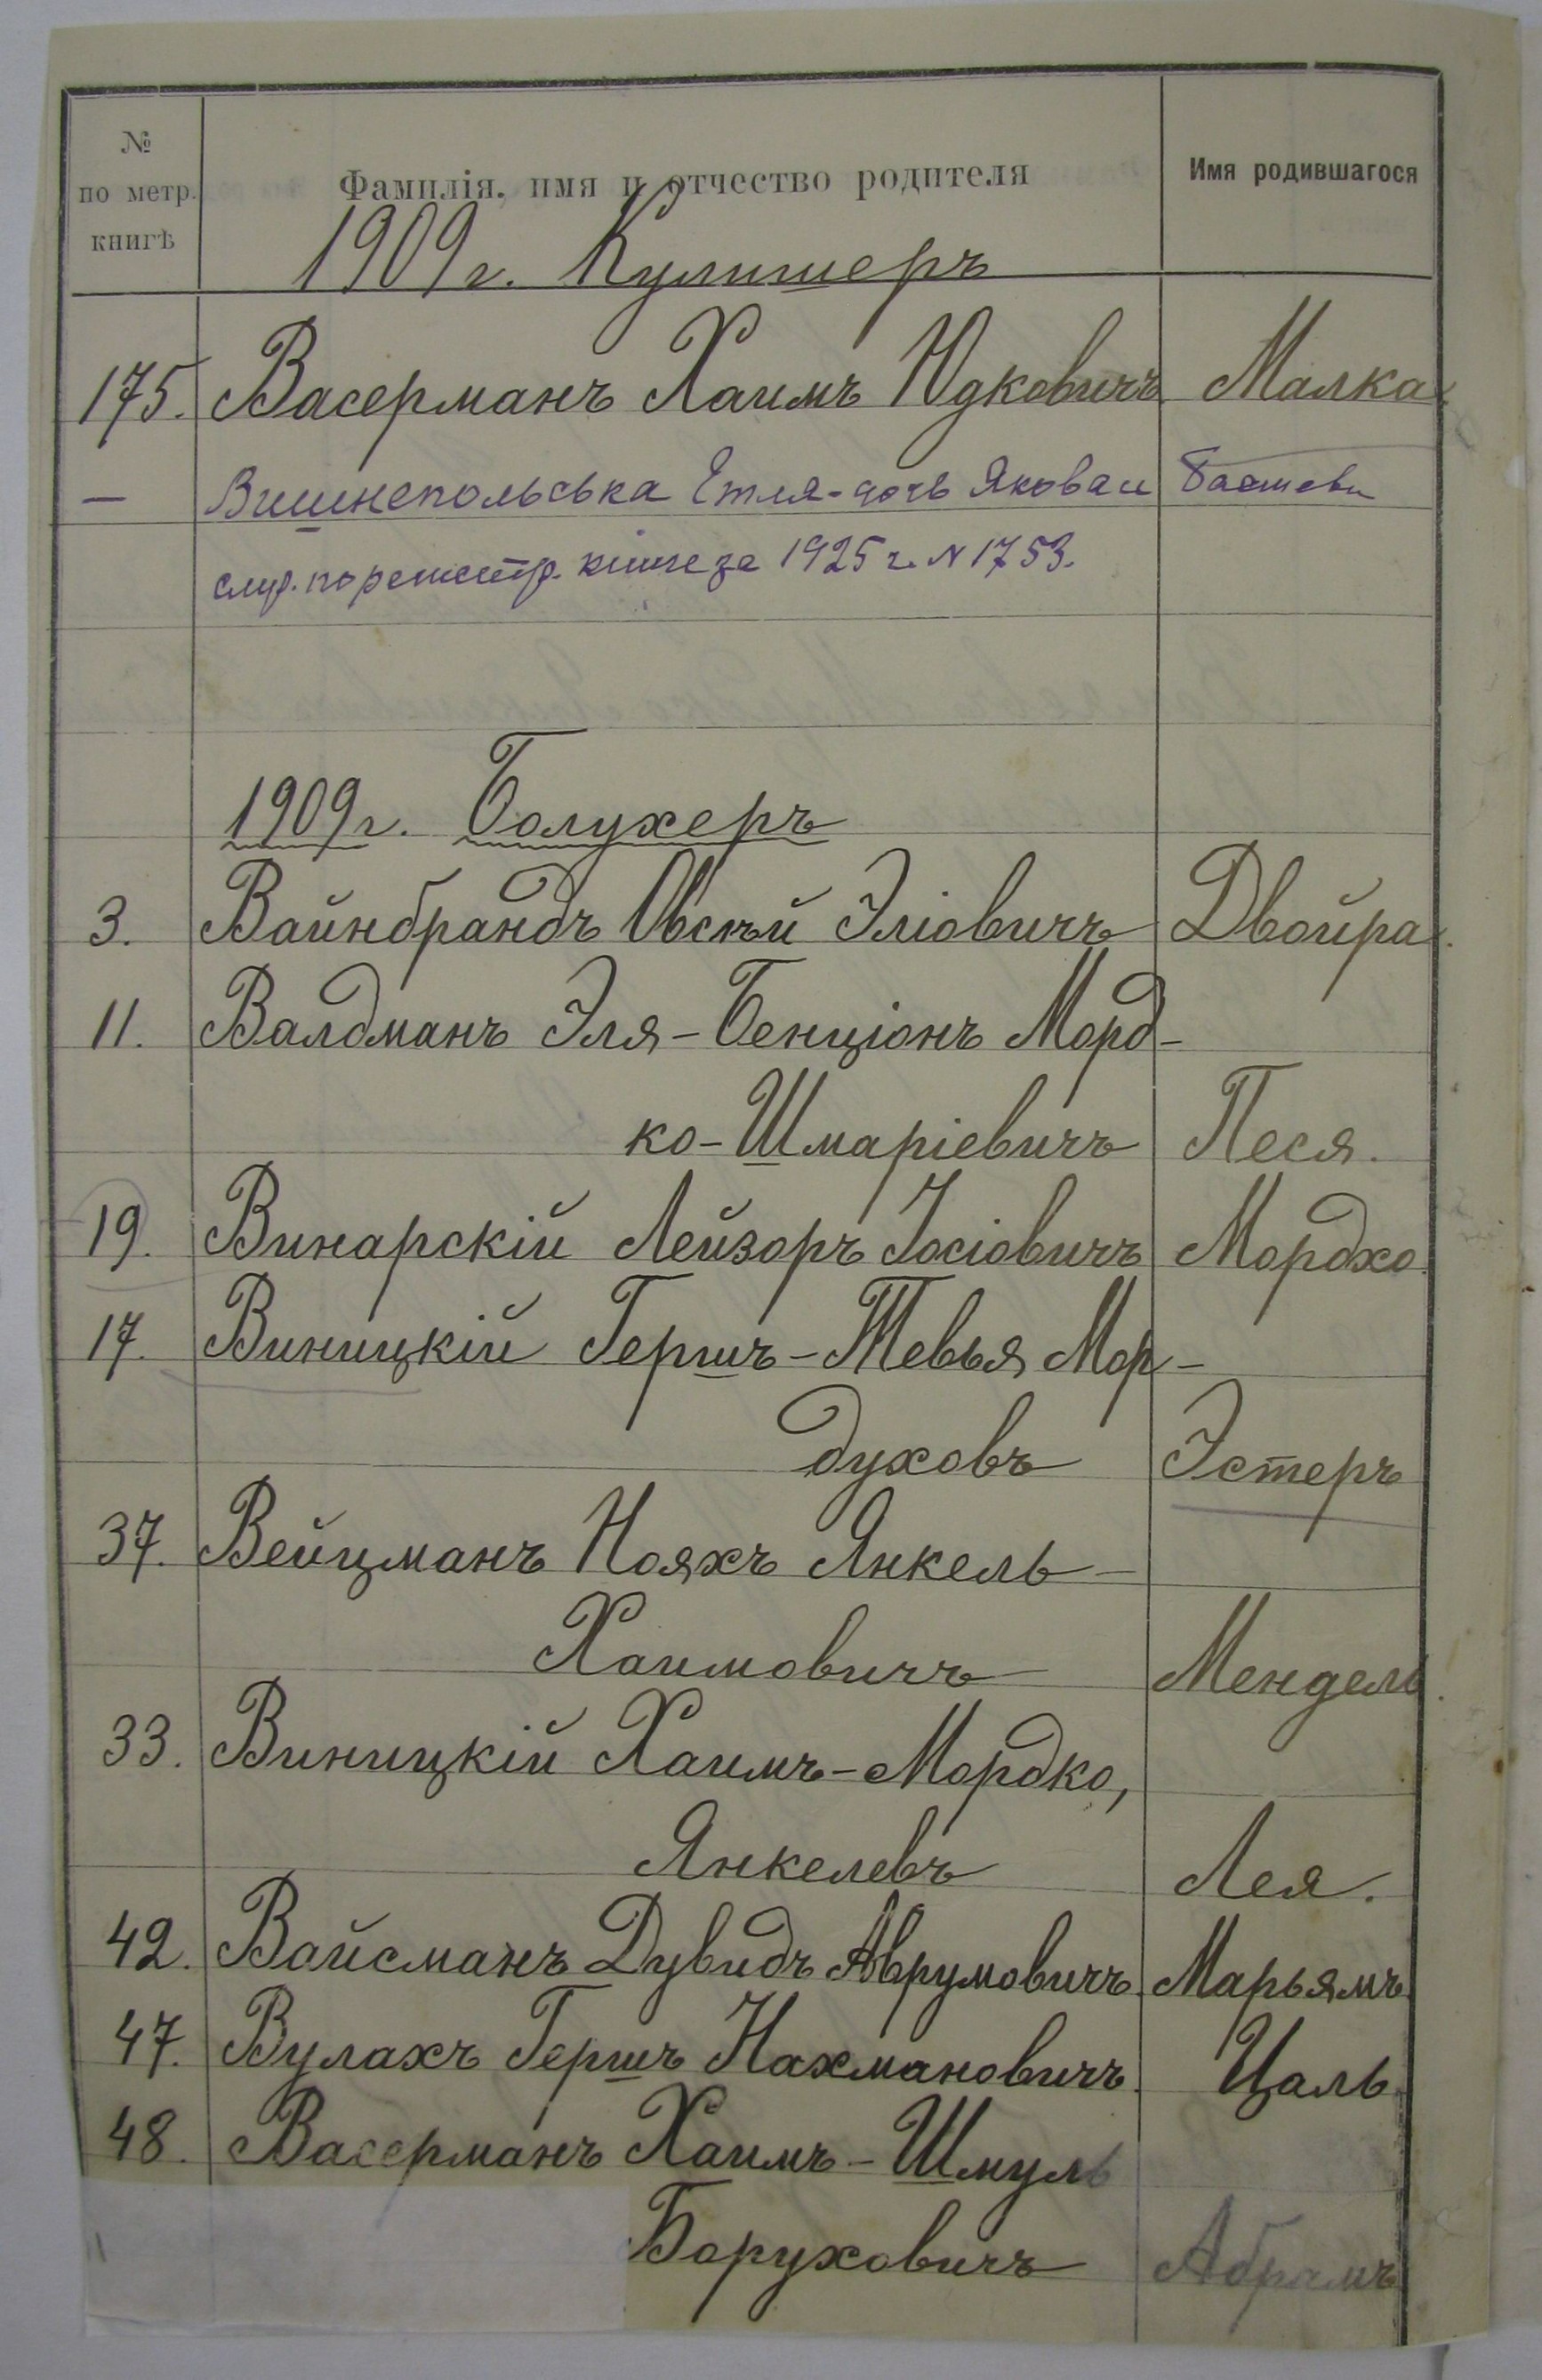 № по метр. книгѣ
Фамилія, имя и отчество родителя
Имя родившагося
1909 г. Кулишеръ
175. Васерманъ Хаимъ Юдковичъ Малка.
— Вишнепольська Етля-дочь Якова и Башеви
по регистр. книге за 1925 г. № 1753.
1909 г. Болухеръ
3. Вайнбрандъ Овсѣй Эліовичъ Двойра.
11. Валдманъ Эля-Бенціонъ Морд-
ко-Шмаріевичъ Песя.
19. Винарскій Лейзоръ Іосіовичъ Мордхо.
17. Виницкій Гершъ-Тевья Мор-
духовъ Эстеръ
37. Вейцманъ Нояхъ Янкель-
Хаимовичъ Мендель.
33. Виницкій Хаимъ-Мордко,
Янкелевъ Лея.
42. Вайсманъ Дувидъ Аврумовичъ. Марьямъ.
47. Вулахъ Гершъ Нахмановичъ. Цаль.
48. Васерманъ Хаимъ-Шмуль
Боруховичъ Абрамъ